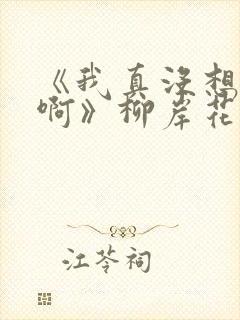 《我真没想
啊》柳岸花
江苓祠